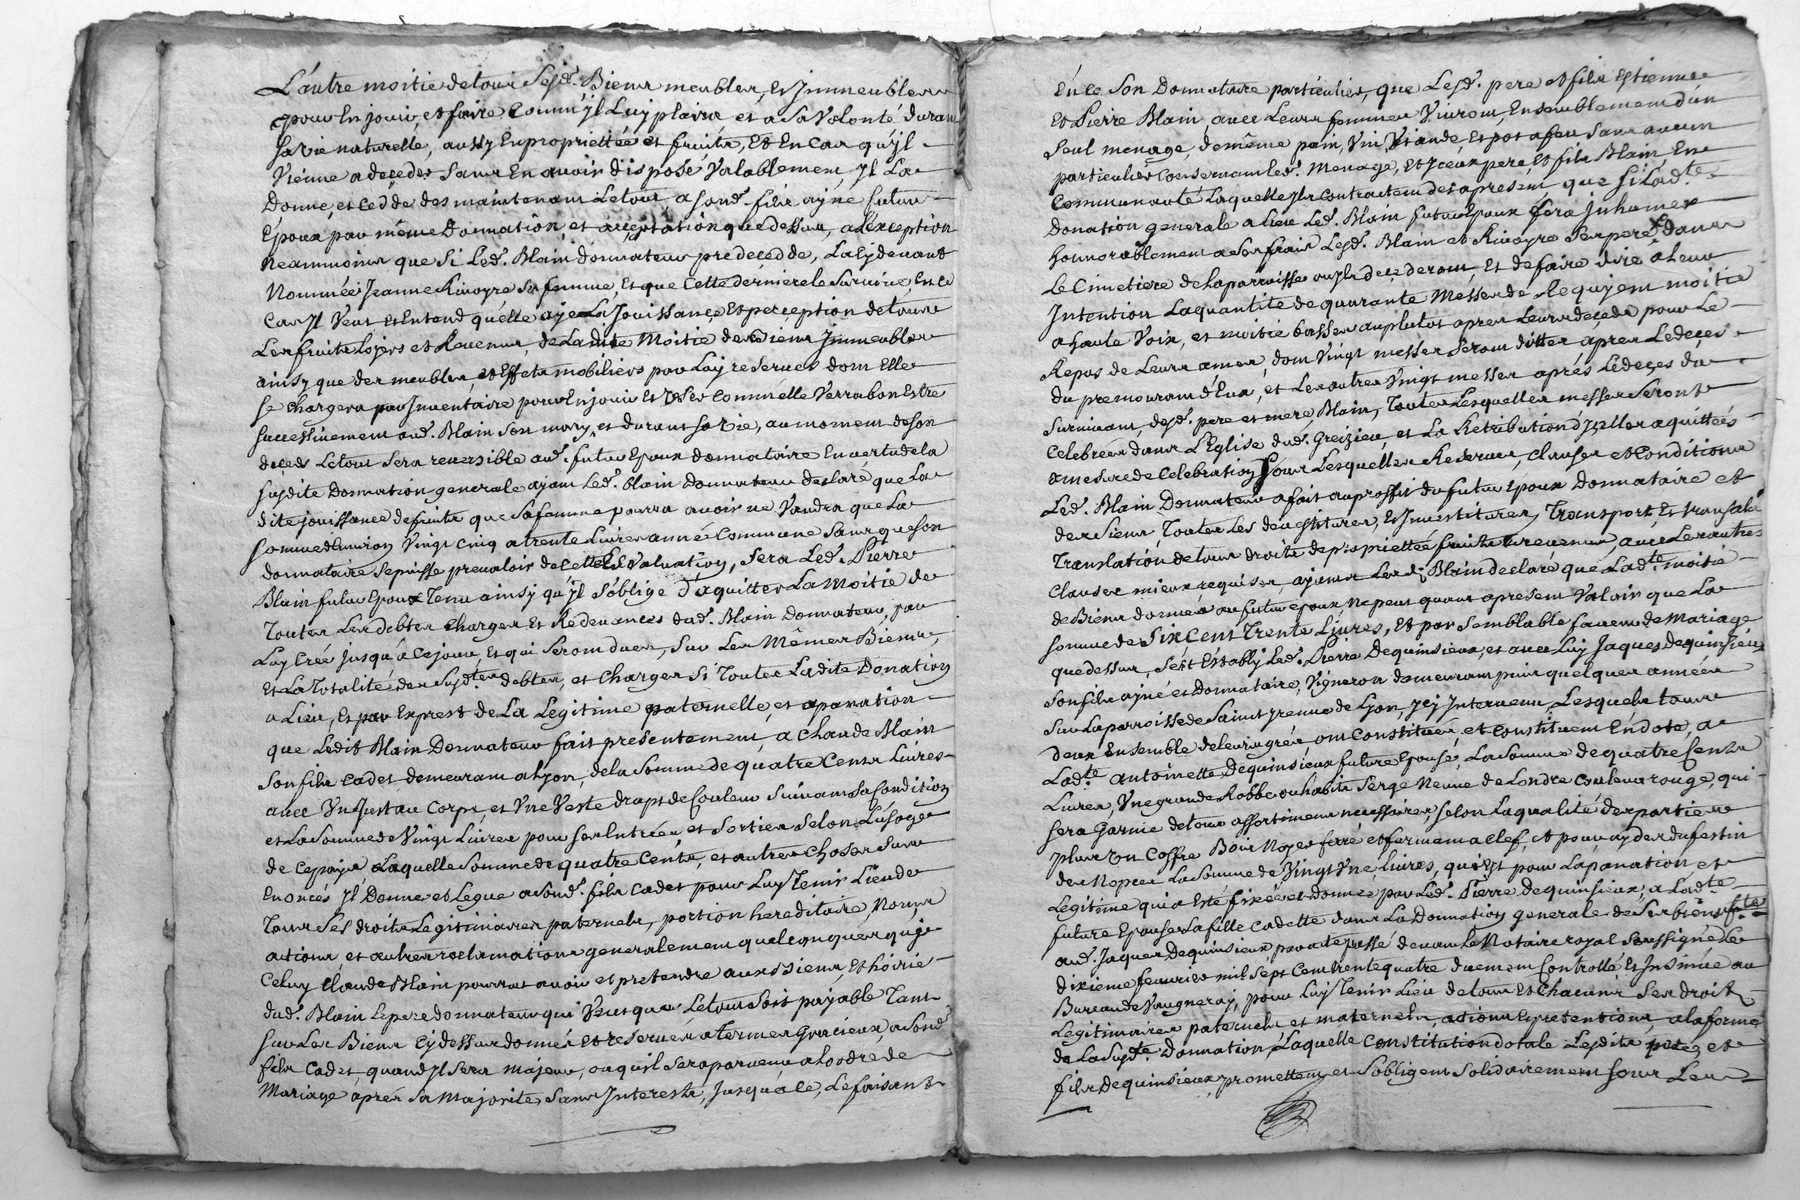 L'autre moitie de tous Sesd. Biens meubles, et Jmmeubles
pour En jouir, et faire Comm'jl Luy plaira et a Sa Volonté durant
Sa vie naturelle, aussy En propriettée et fruits, Et En Cas qu'jl
Vienne a deceder Sans En avoir disposé Valablement, Jl La
Donne, et Cedde des maintenant Le tout a Sond. fils ayné futur
Epoux par même Donnation, et acceptation que dessus, a L'exception
Neammoins que Si Led. Blain donnateur predecedde, La Cydevant
Nommée Jeanne Rivoyre Sa femme, Et que Cette derniere le Survive, En Ce
Cas Jl Veut et Entend quelle aye La Jouissance, Et perception de tous
Les fruits Loyers et Revenus, de Ladite Moitie des Biens Jmmeubles
ainsy que des meubles, et Effets mobiliers par Luy reservés dont Elle
Se Chargera par Jnventaire pour En jouir Et User Comm'elle Verra bon Estre
Successivement aud. Blain Son mary, et durant Sa Vie, au moment de Son
deçes Le tout Sera reversible aud. futur Epoux donnataire En vertu de la
Susdite Donnation generale ayant Led. Blain Donnateur declaré que La
dite jouissance de fruits que Sa femme pourra avoir ne Vaudra que La
Somme d'Environ Vingt Cinq a trente Livres année Commune Sans que Son
donnataire Se puisse prevaloir de Cette Evaluation, Sera Led. Pierre
Blain futur Epoux Tenu ainsy qu'jl S'oblige D'aquitter La Moitie de
Toutes Les Debtes Charges Et Redevances dud. Blain Donnateur, par
Luy Creé Jusqu'a Ce jour, Et qui Seront dues, Sur Les Mêmes Biens,
Et La Totalité des Susd.tes debtes, et Charges Si Toute Ladite Donation
a Lieu, Et par Exprest de La Legitime paternelle, et apanation
que Ledit Blain Donnateur fait presentement, a Claude Blain
Son fils Cadet demeurant a Lyon, de la Somme de quatre Cents Livres
avec Un Just'au Corps, et Une Veste draps de Couleur Suivant Sa Condition
et La Somme de Vingt Livres pour Ses Entrées et Sorties Selon L'usage
de Ce païs Laquelle Somme de quatre Cents, et autres Choses Sus
Enoncés Jl Donne et Legue a Sond. fils Cadet pour Luy Tenir Lieu de
Tous Ses droits Legitimaires paternels, portion hereditaire, Noms
actions, et autres reclamations generalement quelconques que
Celuy Claude Blain pourroit avoir et pretendre aux Siens, Et hoirie
dud. Blain Le pere donnateur, Le tout Soit payable Tant
Sur Les Biens Cy dessus donnés Et reservés a termes Gracieux, a Sond.
fils Cadet, quand Jl Sera majeur, ou qu'il Sera parvenu a L'ordre de
Mariage aprés Sa Majorité, Sans Jnterests, Jusqu'a Ce, Le faisant
En Ce Son Donnataire particulier, que Lesd. pere et fils Estienne
Et Pierre Blain, avec Leurs femmes Vivront, Ensemblement d'un
Seul menage, de même pain, Vin, Viande, Et pot a feu Sans aucun
particulier Concernant led. Menage, Et Jceux pere, Et fils Blain, En
Communauté Laquelle Jls Contractent des apresent, que Si Lad.te
Donation generale a Lieu Led. Blain futur Epoux fera Jnhumer
honnorablement a Ses frais Lesd. Blain et Rivoyre Ses pere dans
Le Cimetiere de La parroisse ou Jls decederont, Et de faire dire a Leur
Jntention La quantité de quarante Messes de Requjem moitie
a haute Voix, et moitie basses au plutot apres Leurs deçeds pour Le
Repos de Leurs ames, dont Vingt messes Seront dittes apres Le deçes
du premourant d'Eux, et Les autres Vingt messes aprés Le deçes du
Survivant, desd. pere et mere Blain, Toutes Lesquelles messes Seront
Celebrées dans L'Eglise dud. Greizieu et La Retribution d'Jcelles aquittées
a mesure de Celebration Sous Lesquelles Reserves, Clauses et Conditions
Led. Blain Donnateur a fait au proffit du futur Epoux donnataire et
des Siens, Toutes Les devestitures, Et Jnvestitures, Transport, Et
Translation de tous droits de propriettée fruits revenus, avec Les autres
Clauses mieux requises, ayants Lesd. Blain declaré que Lad.te moitié
de Biens donnés au futur Epoux, Ne peut quant apresent Valoir que La
Somme de Six Cent Trente Livres, Et par Semblable faveur de Mariage
que dessus, S'est Estably Led. Pierre Dequinsieux, et avec Luy Jaques Dequinsieux
Son fils ayné et Donnataire, Vigneron demeurant puis quelques années
Sur La parroisse de Saint Jrenné de Lyon, Jcy Jntervenu Lesquels tous
deux Ensemble de leurs grés, ont Constitué, et Constituent En dote, a
Lad.te antoinette Dequinsieux future Epouse, La Somme de quatre Cents
Livres, Une grande Robbe ou habits Serge Neuve de Londre Couleur rouge, qui
Sera Garnie de tous assortiments necessaires, Selon La qualité des parties
plus Un Coffre Bois Noyer ferré et fermant a Clef, et pour ayder du festin
des Nopces La Somme de Vingt Une Livres, qui Est pour L'apanation et
Legitime qui a Esté fixée et donnée par Led. Pierre Dequinsieux, a Lad.te
future Epouse Sa fille Cadette dans La Donnation generale de Ses biens fte
aud. Jaques Dequinsieux par acte passé devant Le Notaire royal Soussigné Le
dixieme fevrier mil Sept Cent trente quatre duement Controllé Et Jnsinué au
Bureau de Vaugneray, pour Luy Tenir Lieu de tous Et Chacuns Ses droits
Legitimaires paternels et maternels, actions Et pretentions, a la forme
de La Susd.te Donnation, Laquelle Constitution dotale Lesdits pere, et
fils Dequinsieux, promettent et S'obligent Solidairement Sous Les